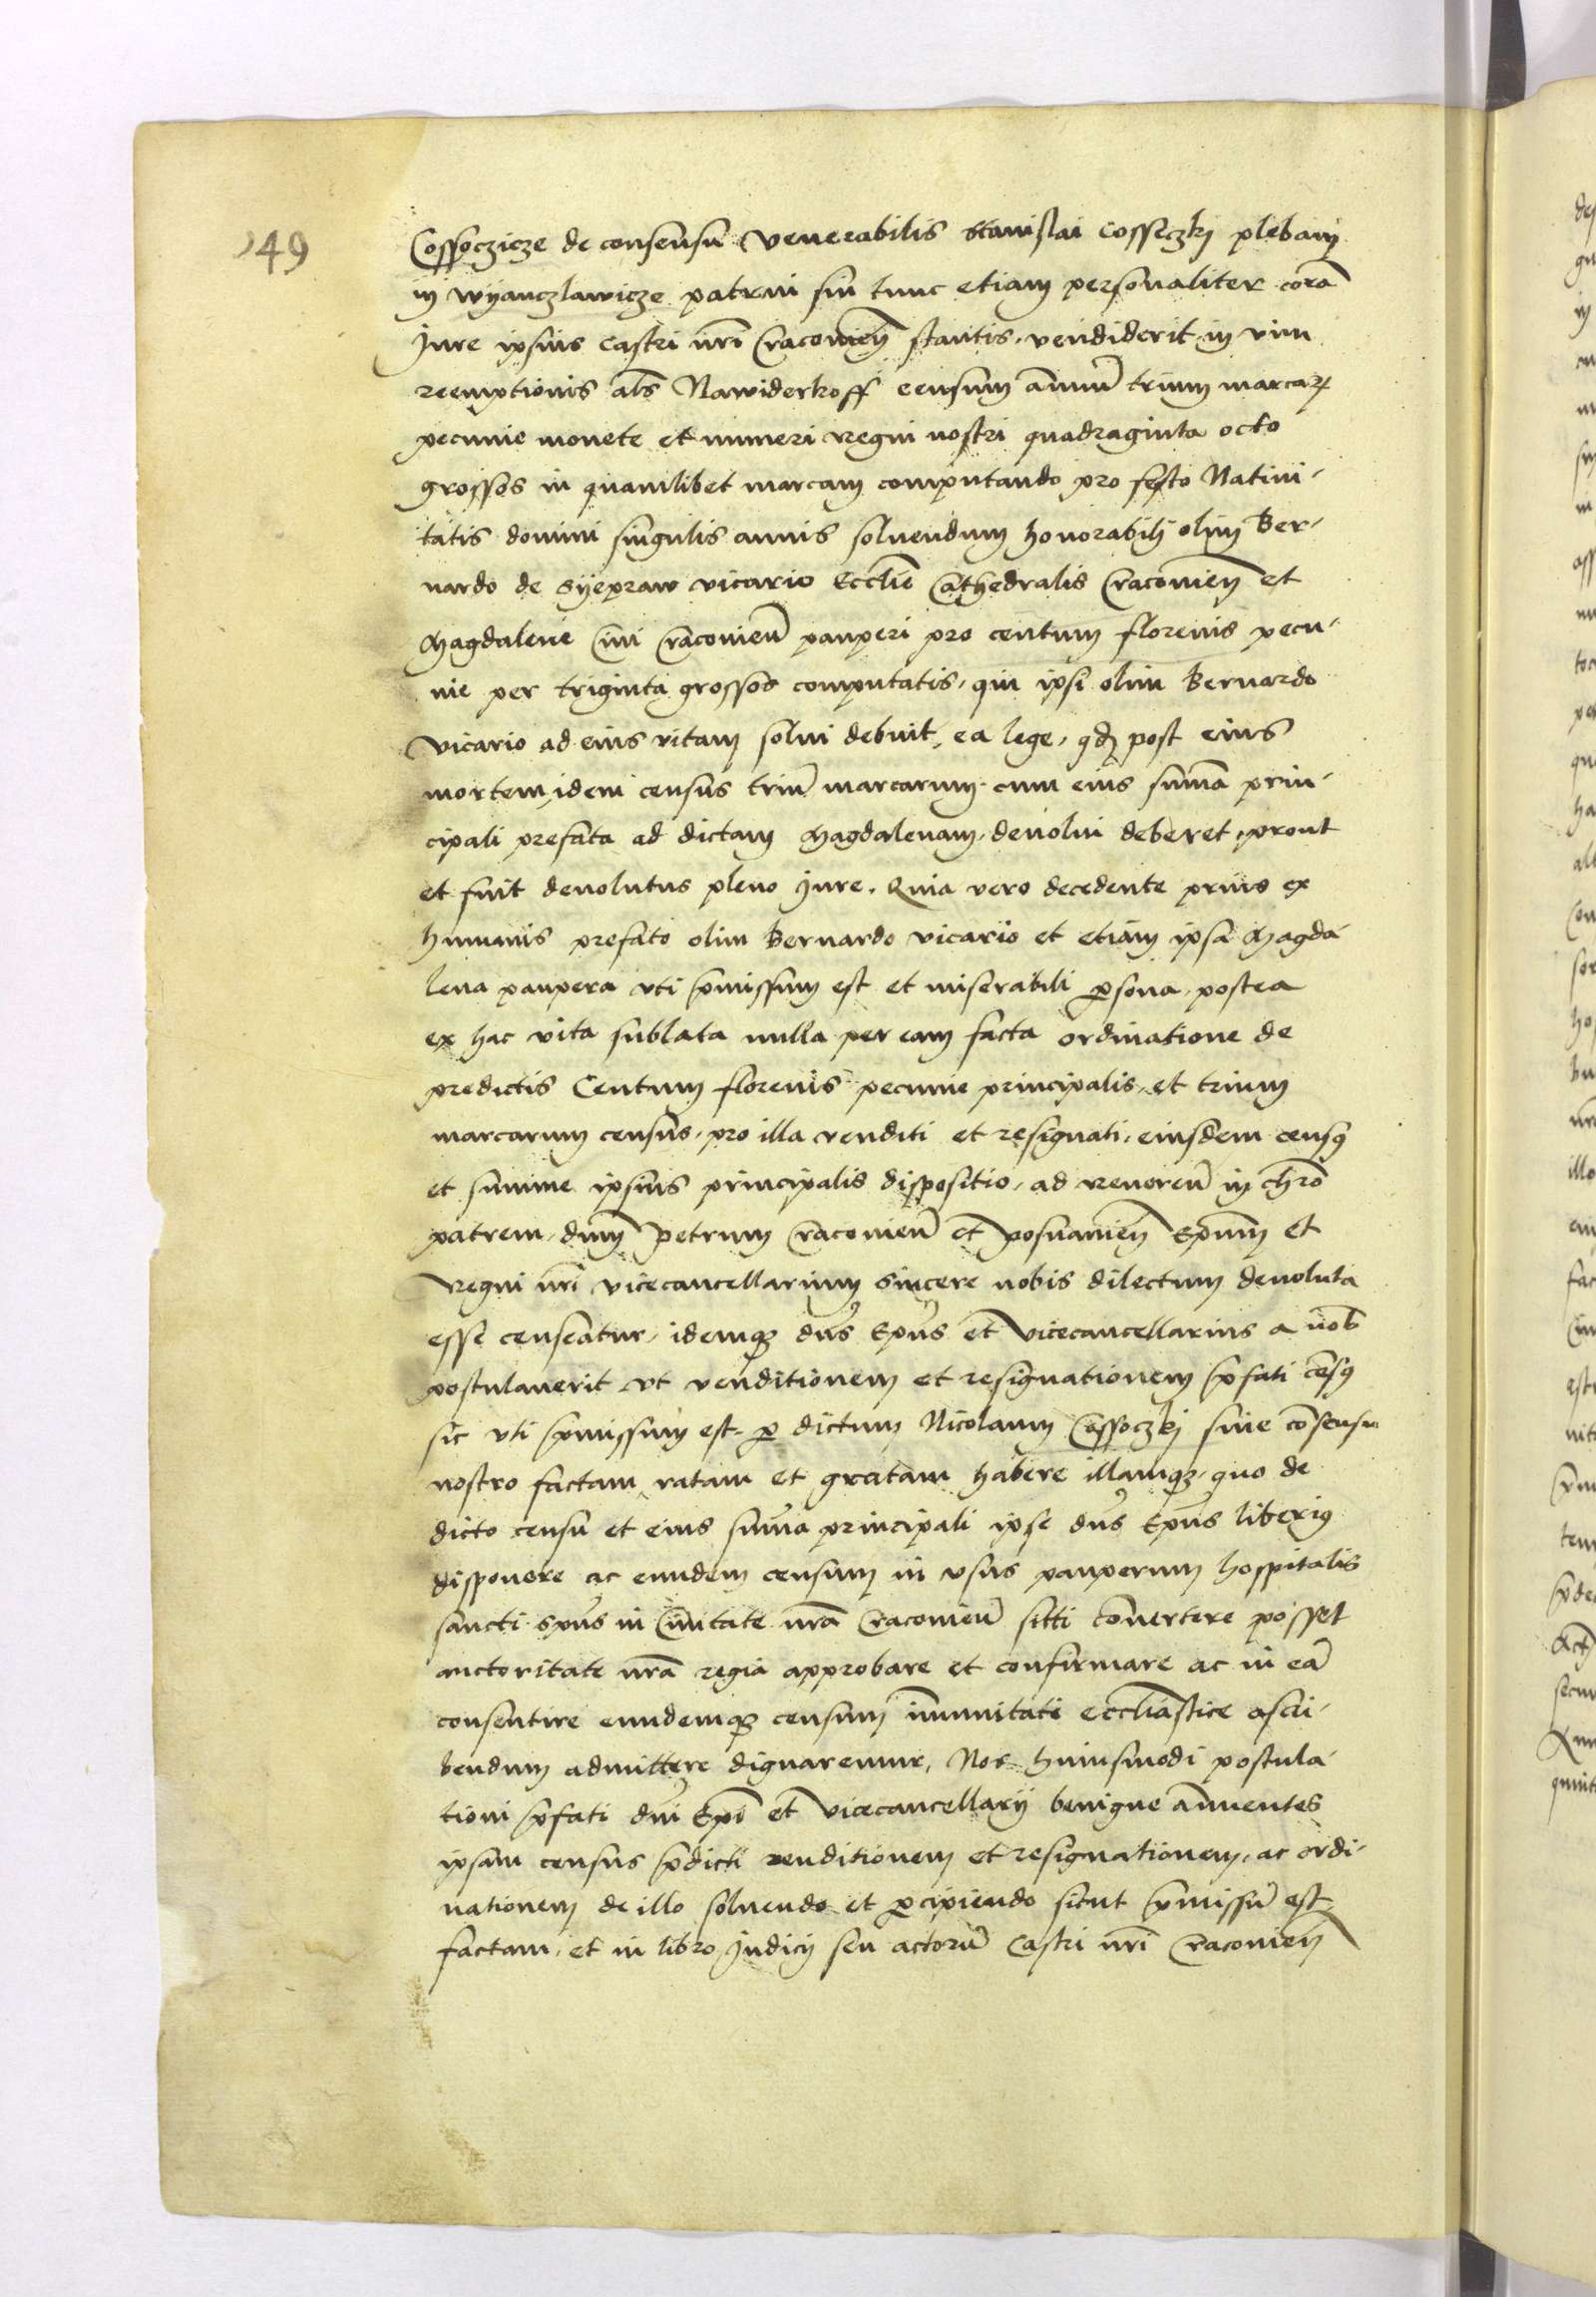 249
Cossoczicze de consensu venerabilis Stanislai Cosseczkj plebanj
in Wyanczlawicze patrui sui tunc etiam personaliter corā
Jure ipsius Castri nr̄i Cracouien̄ stantis, vendiderit in vim
reemptionis als Nawiderkoff censum annuū trium marcaꝝ
pecunie monete et numeri regni nostri quadraginta octo
grossos in quamlibet marcam computando pro festo Natiui-
tatis domini singulis annis soluendum honorabilj olim Ber-
nardo de Syepraw vicario Eccl̄ie Cathedralis Cracouien̄ et
Magdalene Ciui Cracouien̄ pauperi pro centum florenis pecu-
nie per triginta grossos computatis, qui ipsi olim Bernardo
vicario ad eius vitam solui debuit, ea lege, qđ post eius
mortem, idem census triū marcarum cum eius sum̄a prin-
cipali prefata ad dictam Magdalenam, deuolui deberet, prout
et fuit deuolutus pleno Jure. Quia vero decedente prius ex
humanis prefato olim Bernardo vicario et etiam ipsa Magda-
lena paupera vti p̄missum est et miserabili ꝑsona, postea
ex hac vita sublata nulla per eam facta ordinatione de
predictis Centum florenis pecunie principalis, et trium
marcarum census, pro illa venditi et resignati, eiusdem censꝯ
et summe ipsius principalis dispositio, ad reuerēn in chrō
patrem, dn̄m Petrum Cracouien̄ et Posnanien̄ Ep̄um et
Regni nr̄i vicecancellarium sincere nobis dilectum deuoluta
esse censeatur, idemqꝫ dn̄s Ep̄us et vicecancellarius a nob̄
postulauerit vt venditionem et resignationem p̄fati cēsꝯ
sic vti p̄missum est, ꝑ dictum Nicolaum Cossoczkj siue cōsensu
nostro factam, ratam et gratam habere illamqꝫ, quo de
dicto censu et eius sum̄a principali ipse dn̄s Ep̄us liberiꝯ
disponere ac eundem censum in vsus pauperum hospitalis
sancti sp̄us in Ciuitate nr̄a Cracouien̄ sitti conuertere posset
auctoritate nr̄a regia approbare et confirmare ac in eā
consentire eundemqꝫ censum im̄unitati eccl̄iastice ascri-
bendum admittere dignaremur, Nos huiusmodi postula-
tioni p̄fati dn̄i Ep̄i et vicecancellarij benigne annuentes
ipsam census p̄dicti venditionem et resignationem, ac ordi-
nationem de illo soluendo et ꝑcipiendo sicut p̄missū est
factam, et in libro Judicij seu actorū Castri nr̄i Cracouien̄